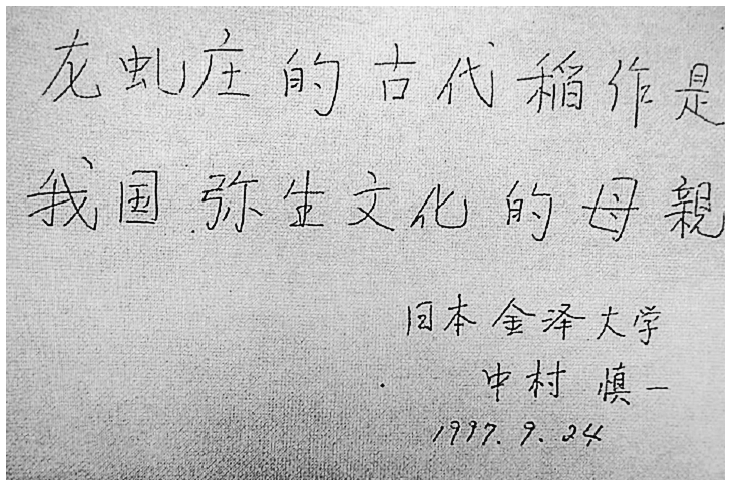 龙虬庄的古代稲作是
我国弥生文化的母親
日本金泽大学
中村慎一
1997.9.24